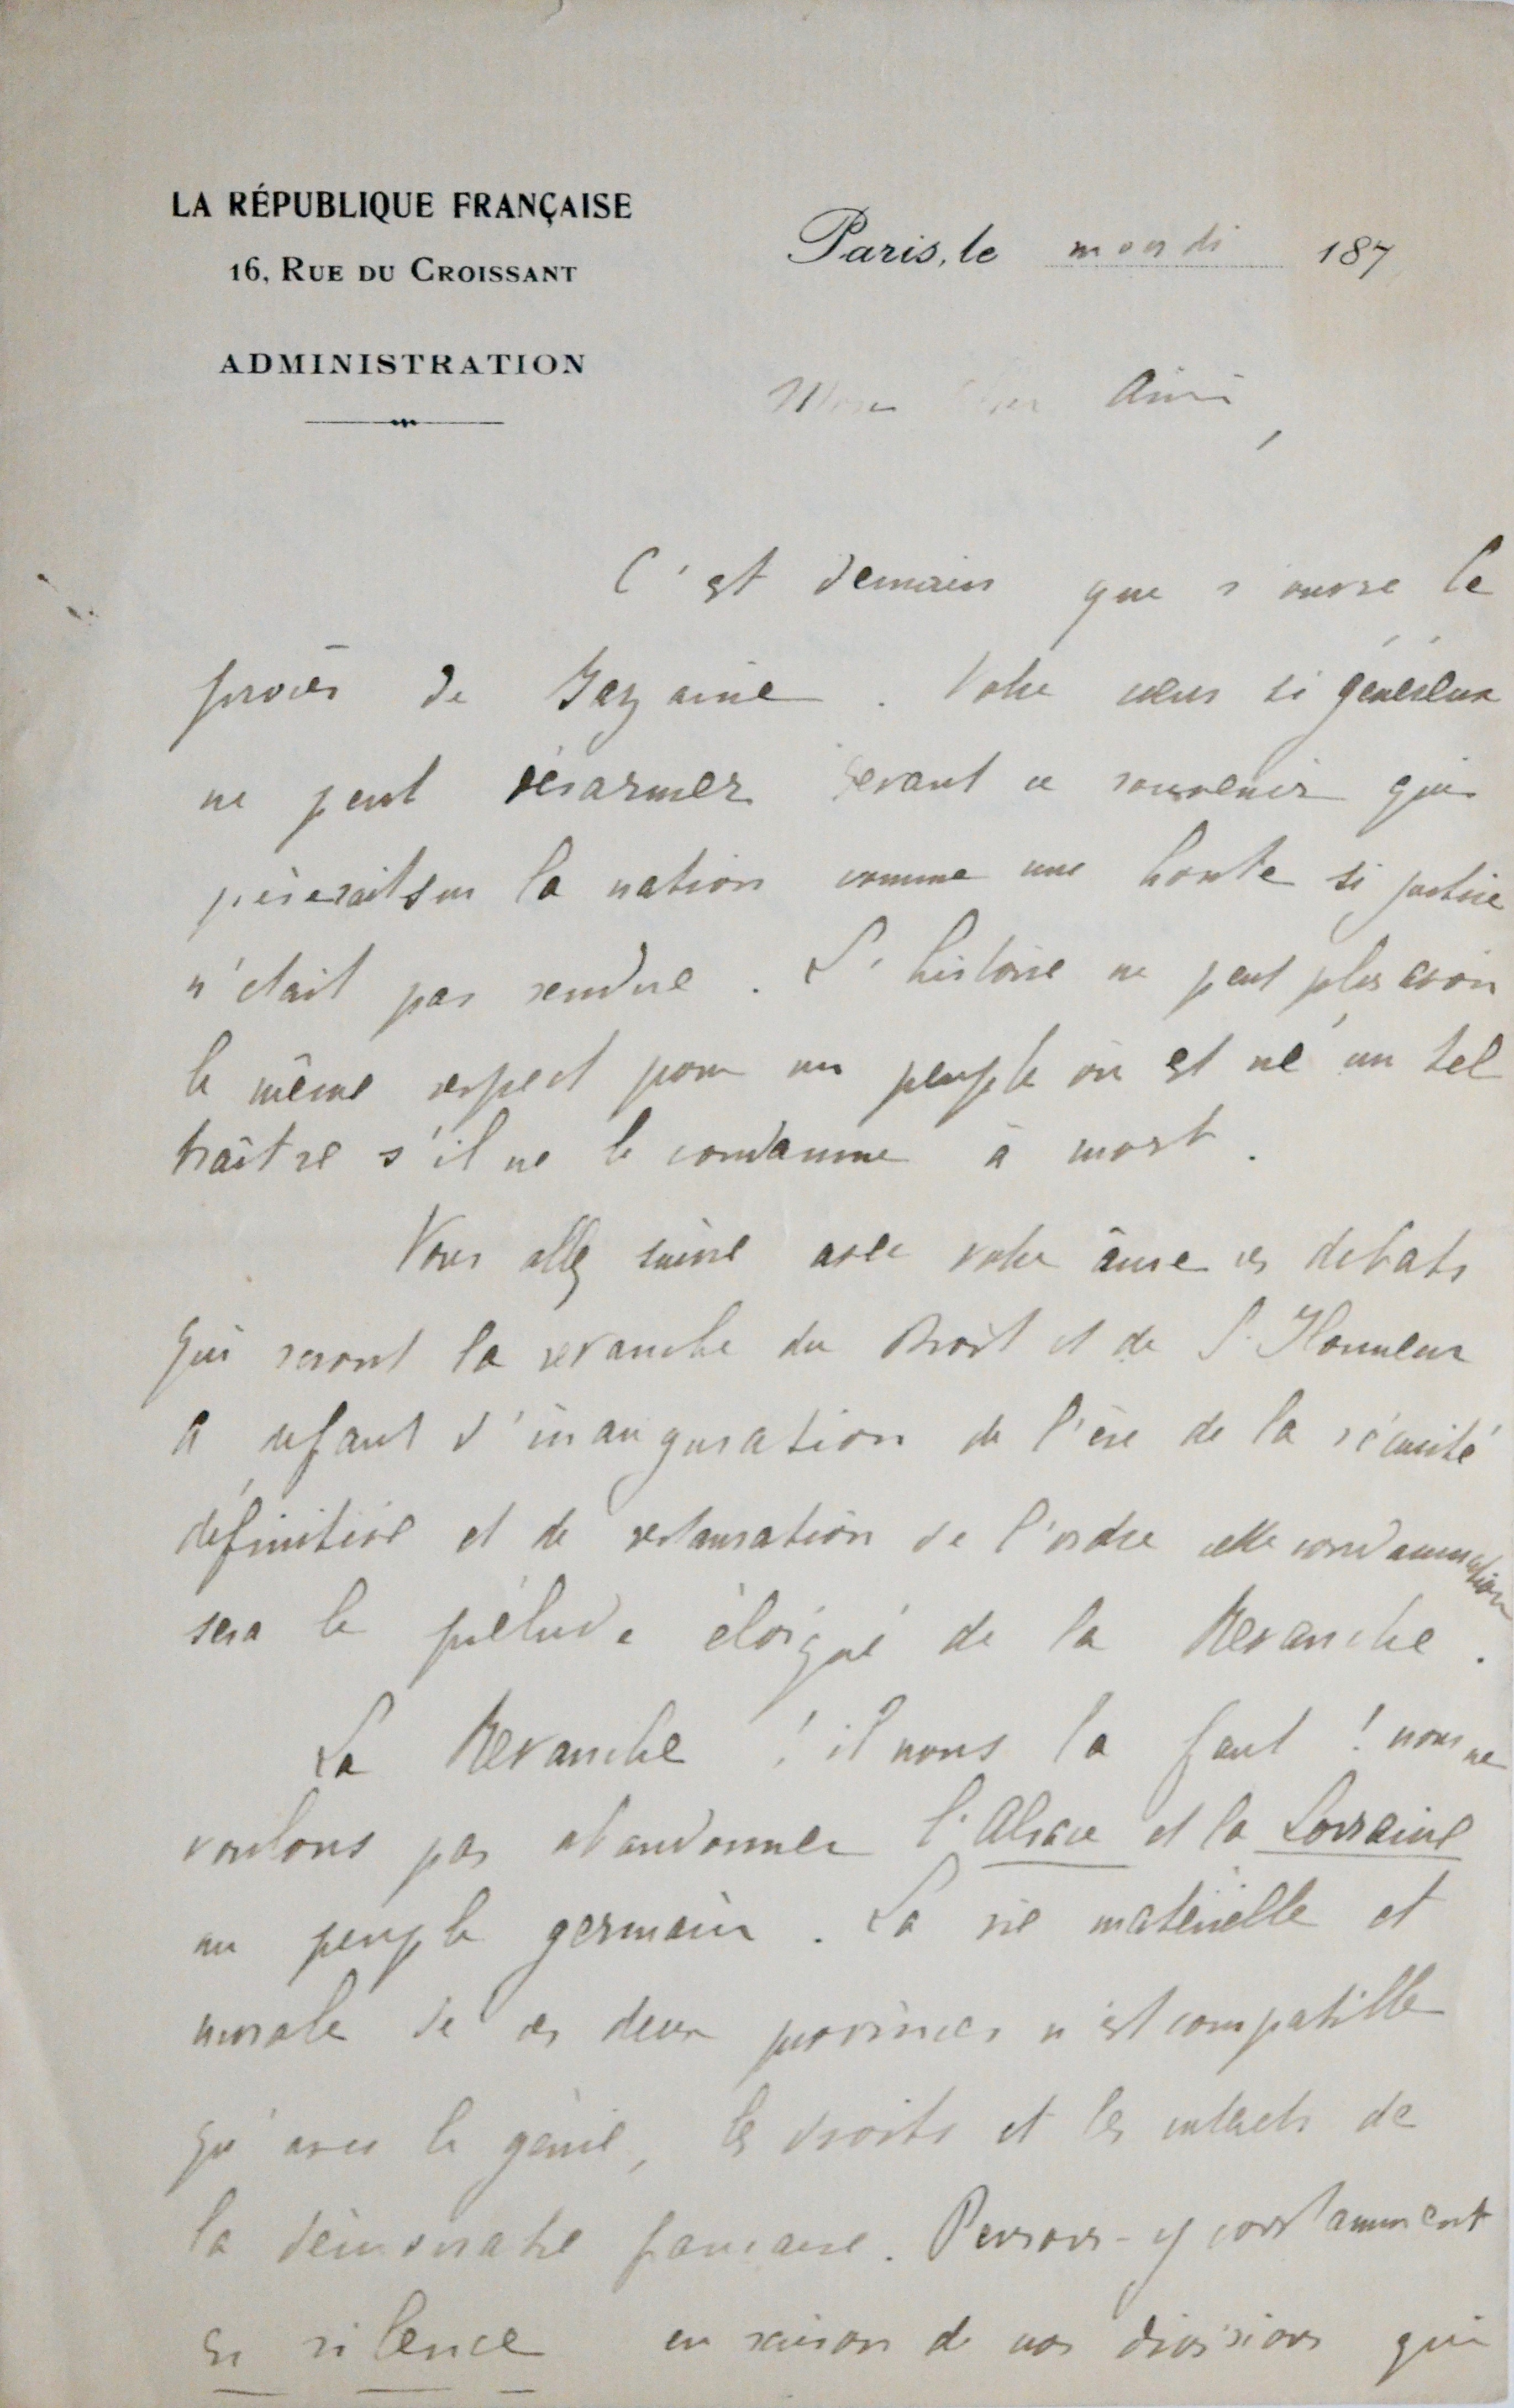 LA RÉPUBLIQUE FRANÇAISE
16, RUE DU CROISSANT
ADMINISTRATION
Paris, le mardi 187
Mon cher Ami,
C'est demain que s'ouvre le
procès de Bazaine. Votre cœur si généreux
ne peut désarmer devant ce souvenir qui
pèserait sur la nation comme une honte si justice
n'était pas rendue. L'histoire ne peut plus avoir
le même respect pour un peuple où est né un tel
traître s'il ne le condamne à mort.
Vous allez suivre avec votre âme ces debats
qui seront la revanche du Droit et de l'Honneur
A défaut d'inauguration de l'ère de la sécurité
définitive et de restauration de l'ordre cette condamnation
sera le prélude éloigné de la Revanche.
La Revanche ! il nous la faut ! nous ne
voulons pas abandonner l'Alsace et la Lorraine
au peuple germain. La vie matérielle et
morale de ces deux provinces n'est compatible
qu'avec le génie, les droits et les intérets de
la démocratie française. Pensons-y constamment
en silence en raison de nos divisions qui